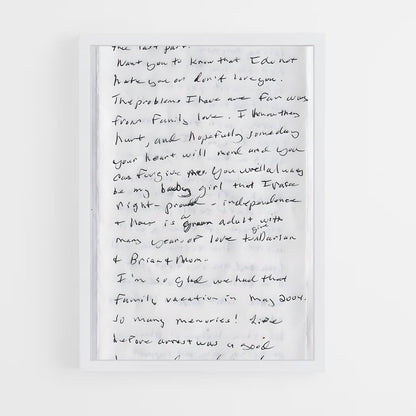 the last part.
Want you to know that I do not
hate you or don't love you.
The problems I have are far away
from Family love. I know they
hurt, and hopefully someday
your heart will mend and you
can forgive me. You will always
be my baby girl that I raised
right - proud - independence
+ now is a grown adult with
many years of love to give Darian
& Brian & Mom.
I'm so glad we had that
Family vacation in May 2004.
so many memories!
before arrest was a good